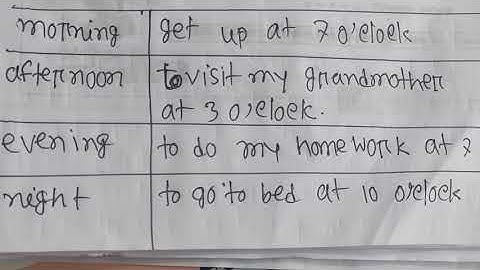 morning get up at 7 o'clock
afternoon to visit my grandmother
at 3 o'clock.
evening to do my homework at 7
night to go to bed at 10 o'clock